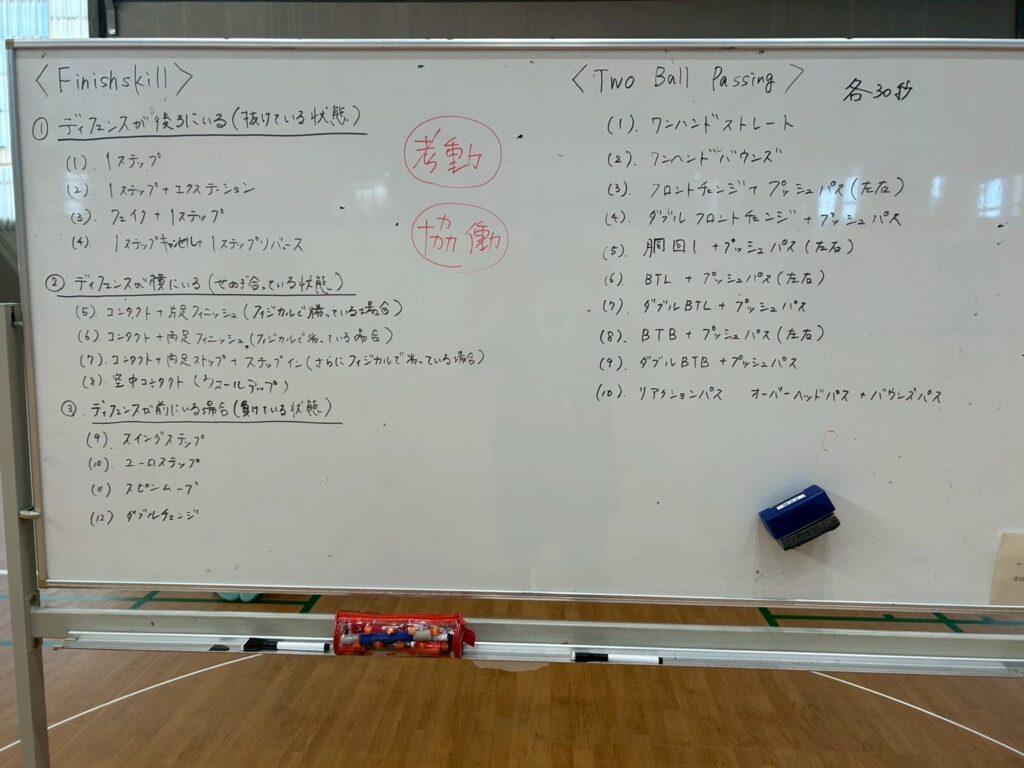 〈Finishskill〉
① ディフェンスが後ろにいる(抜けている状態)
(1). 1ステップ
(2). 1ステップ+エクステーション
(3). フェイク+1ステップ
(4). 1ステップキャンセル+1ステップリバース
② ディフェンスが横にいる(せめぎ合っている状態)
(5). コンタクト+片足フィニッシュ(フィジカルで勝っている場合)
(6). コンタクト+両足フィニッシュ(フィジカルで劣っている場合)
(7). コンタクト+両足ストップ+ステップイン(さらにフィジカルで劣っている場合)
(8). 空中コンタクト(ウォールアップ)
③. ディフェンスが前にいる場合(負けている状態)
(9). スイングステップ
(10). ユーロステップ
(11). スピンムーブ
(12). ダブルチェンジ
考動
協働
〈Two Ball Passing〉 各30秒
(1). ワンハンドストレート
(2). ワンハンドバウンズ
(3). フロントチェンジ+プッシュパス(左右)
(4). ダブルフロントチェンジ+プッシュパス
(5). 胴回し+プッシュパス(左右)
(6) BTL+プッシュパス(左右)
(7). ダブルBTL+プッシュパス
(8). BTB+プッシュパス(左右)
(9). ダブルBTB+プッシュパス
(10). リアクションパス オーバーヘッドパス+バウンズパス